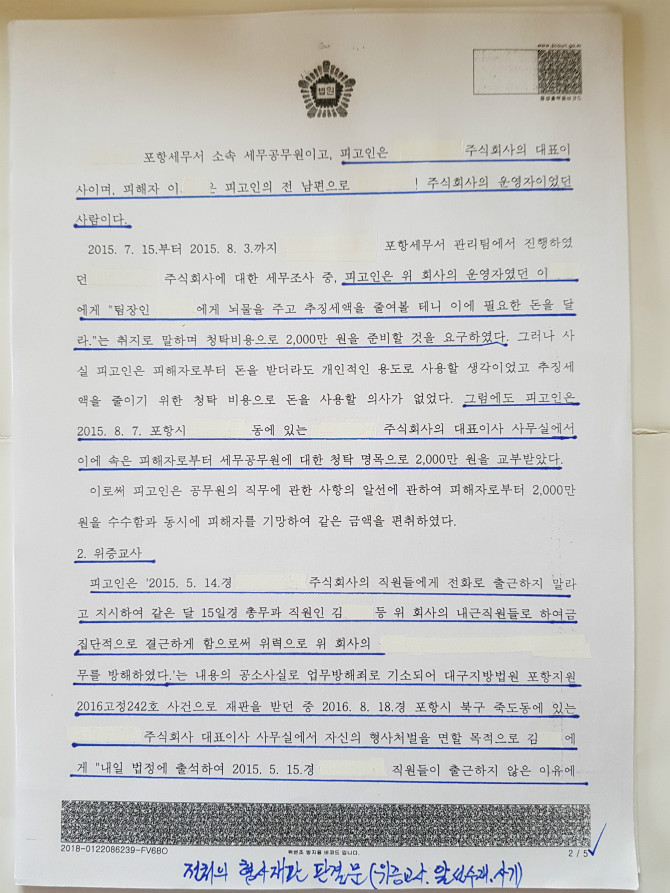 www.scourt.go.kr
법원
포항세무서 소속 세무공무원이고, 피고인은 주식회사의 대표이
사이며, 피해자 이 는 피고인의 전 남편으로 주식회사의 운영자이었던
사람이다.
2015. 7. 15.부터 2015. 8. 3.까지 포항세무서 관리팀에서 진행하였
던 주식회사에 대한 세무조사 중, 피고인은 위 회사의 운영자였던 이
에게 "팀장인 에게 뇌물을 주고 추징세액을 줄여볼 테니 이에 필요한 돈을 달
라."는 취지로 말하며 청탁비용으로 2,000만 원을 준비할 것을 요구하였다. 그러나 사
실 피고인은 피해자로부터 돈을 받더라도 개인적인 용도로 사용할 생각이었고 추징세
액을 줄이기 위한 청탁 비용으로 돈을 사용할 의사가 없었다. 그럼에도 피고인은
2015. 8. 7. 포항시 동에 있는 주식회사의 대표이사 사무실에서
이에 속은 피해자로부터 세무공무원에 대한 청탁 명목으로 2,000만 원을 교부받았다.
이로써 피고인은 공무원의 직무에 관한 사항의 알선에 관하여 피해자로부터 2,000만
원을 수수함과 동시에 피해자를 기망하여 같은 금액을 편취하였다.
2. 위증교사
피고인은 '2015. 5. 14.경 주식회사의 직원들에게 전화로 출근하지 말라
고 지시하여 같은 달 15일경 총무과 직원인 김 등 위 회사의 내근직원들로 하여금
집단적으로 결근하게 함으로써 위력으로 위 회사의
무를 방해하였다.'는 내용의 공소사실로 업무방해죄로 기소되어 대구지방법원 포항지원
2016고정242호 사건으로 재판을 받던 중 2016. 8. 18.경 포항시 북구 죽도동에 있는
주식회사 대표이사 사무실에서 자신의 형사처벌을 면할 목적으로 김 에
게 "내일 법정에 출석하여 2015. 5. 15.경 직원들이 출근하지 않은 이유에
2018-0122086239-FV68O
위변조 방지용 바코드 입니다.
2 / 5
전처의 형사재판 판결문 (위증교사. 알선수재. 사기)